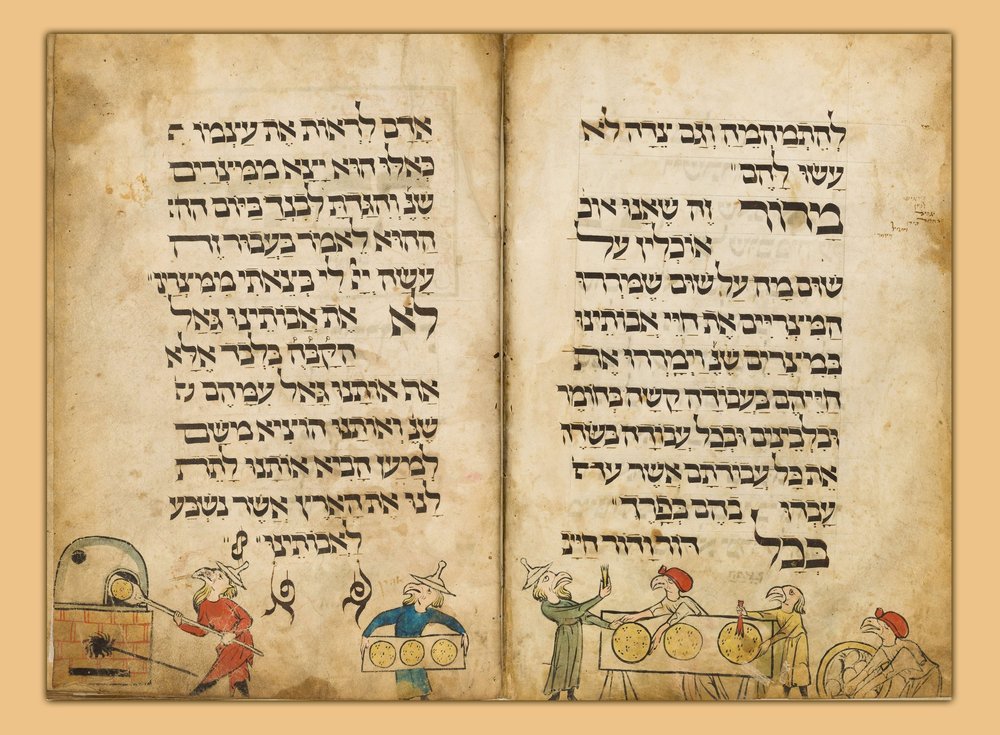 להתמהמה וגם צדה לא
עשו להם"
מרור זה שאנו אוכ
אוכלין על
שום מה על שום שמררו
המצריים את חיי אבותינו
במצרים שנ וימררו את
חייהם בעבודה קשה בחומר
ובלבינים ובכל עבודה בשדה
את כל עבודתם אשר
עבדו בהם בפרך"
בכל דור ודור חייב
אדם לראות את עצמו
כאלו הוא יצא ממצרים
שנ והגדת לבנך ביום הה
ההוא לאמר בעבור זה
עשה יי לי בצאתי ממצרים"
לא את אבותינו גאל
הקבה בלבד אלא
אף אותנו גאל עמהם
שנ ואותנו הוציא משם
למען הביא אותנו לתת
לנו את הארץ אשר נשבע
לאבותינו"